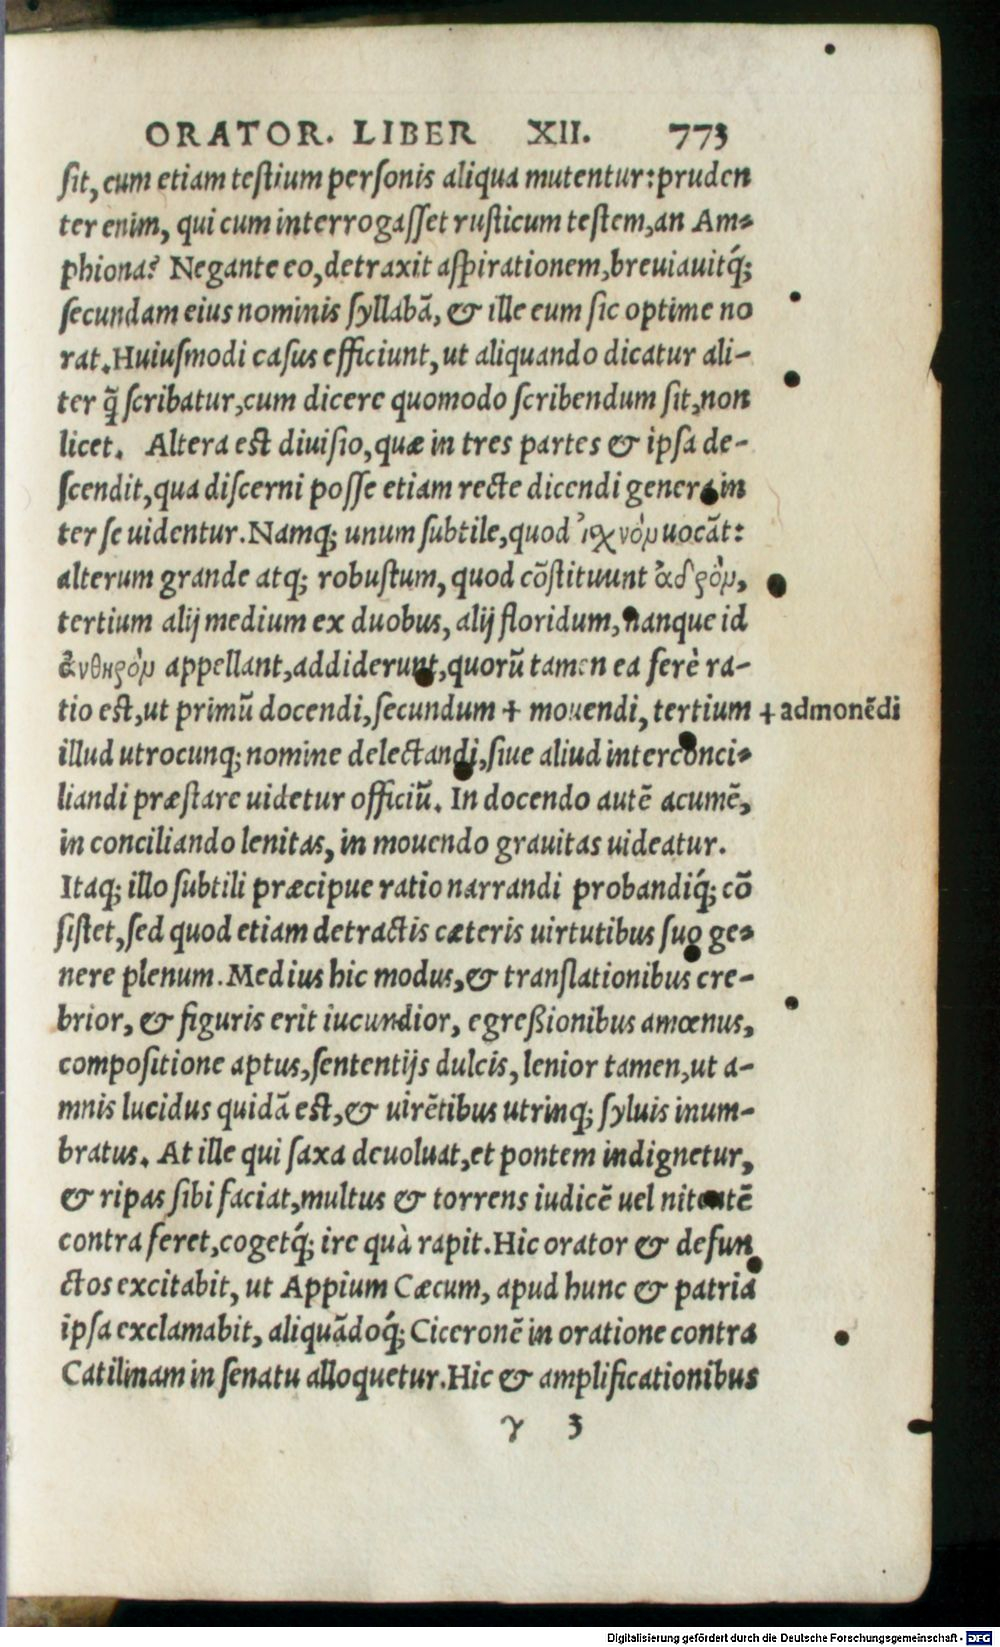 ORATOR. LIBER XII. 773
ſit, cum etiam teſtium perſonis aliqua mutentur: pruden
ter enim, qui cum interrogaſſet ruſticum teſtem, an Am-
phiona? Negante eo, detraxit aſpirationem, breviavitq́;
ſecundam eius nominis ſyllabã, & ille eum ſic optime no
rat. Huiuſmodi caſus efficiunt, ut aliquando dicatur ali-
ter q̃ ſcribatur, cum dicere quomodo ſcribendum ſit, non
licet. Altera eſt diviſio, quæ in tres partes & ipſa de-
ſcendit, qua diſcerni poſſe etiam recte dicendi genera in
ter ſe uidentur. Namq; unum ſubtile, quod ἰχνὸμ uocãt:
alterum grande atq; robuſtum, quod cõſtituunt ἁδρὸμ,
tertium alij medium ex duobus, alij floridum, nanque id
ἀνθηρὸμ appellant, addiderunt, quorũ tamen ea ferè ra-
tio eſt, ut primũ docendi, ſecundum + mouendi, tertium + admonẽdi
illud utrocunq; nomine delectandi, ſiue aliud interconci-
liandi præſtare uidetur officiũ. In docendo autẽ acumẽ,
in conciliando lenitas, in mouendo grauitas uideatur.
Itaq; illo ſubtili præcipue ratio narrandi probandiq́; cõ
ſiſtet, ſed quod etiam detractis cæteris uirtutibus ſuo ge-
nere plenum. Medius hic modus, & tranſlationibus cre-
brior, & figuris erit iucundior, egreßionibus amœnus,
compoſitione aptus, ſententijs dulcis, lenior tamen, ut a-
mnis lucidus quidã eſt, & uirẽtibus utrinq; ſyluis inum-
bratus. At ille qui ſaxa deuoluat, et pontem indignetur,
& ripas ſibi faciat, multus & torrens iudicẽ uel nitentẽ
contra feret, cogetq́; ire quà rapit. Hic orator & defun
ctos excitabit, ut Appium Cæcum, apud hunc & patria
ipſa exclamabit, aliquãdoq́; Ciceronẽ in oratione contra
Catilinam in ſenatu alloquetur. Hic & amplificationibus
γ 3
Digitalisierung gefördert durch die Deutsche Forschungsgemeinschaft - DFG